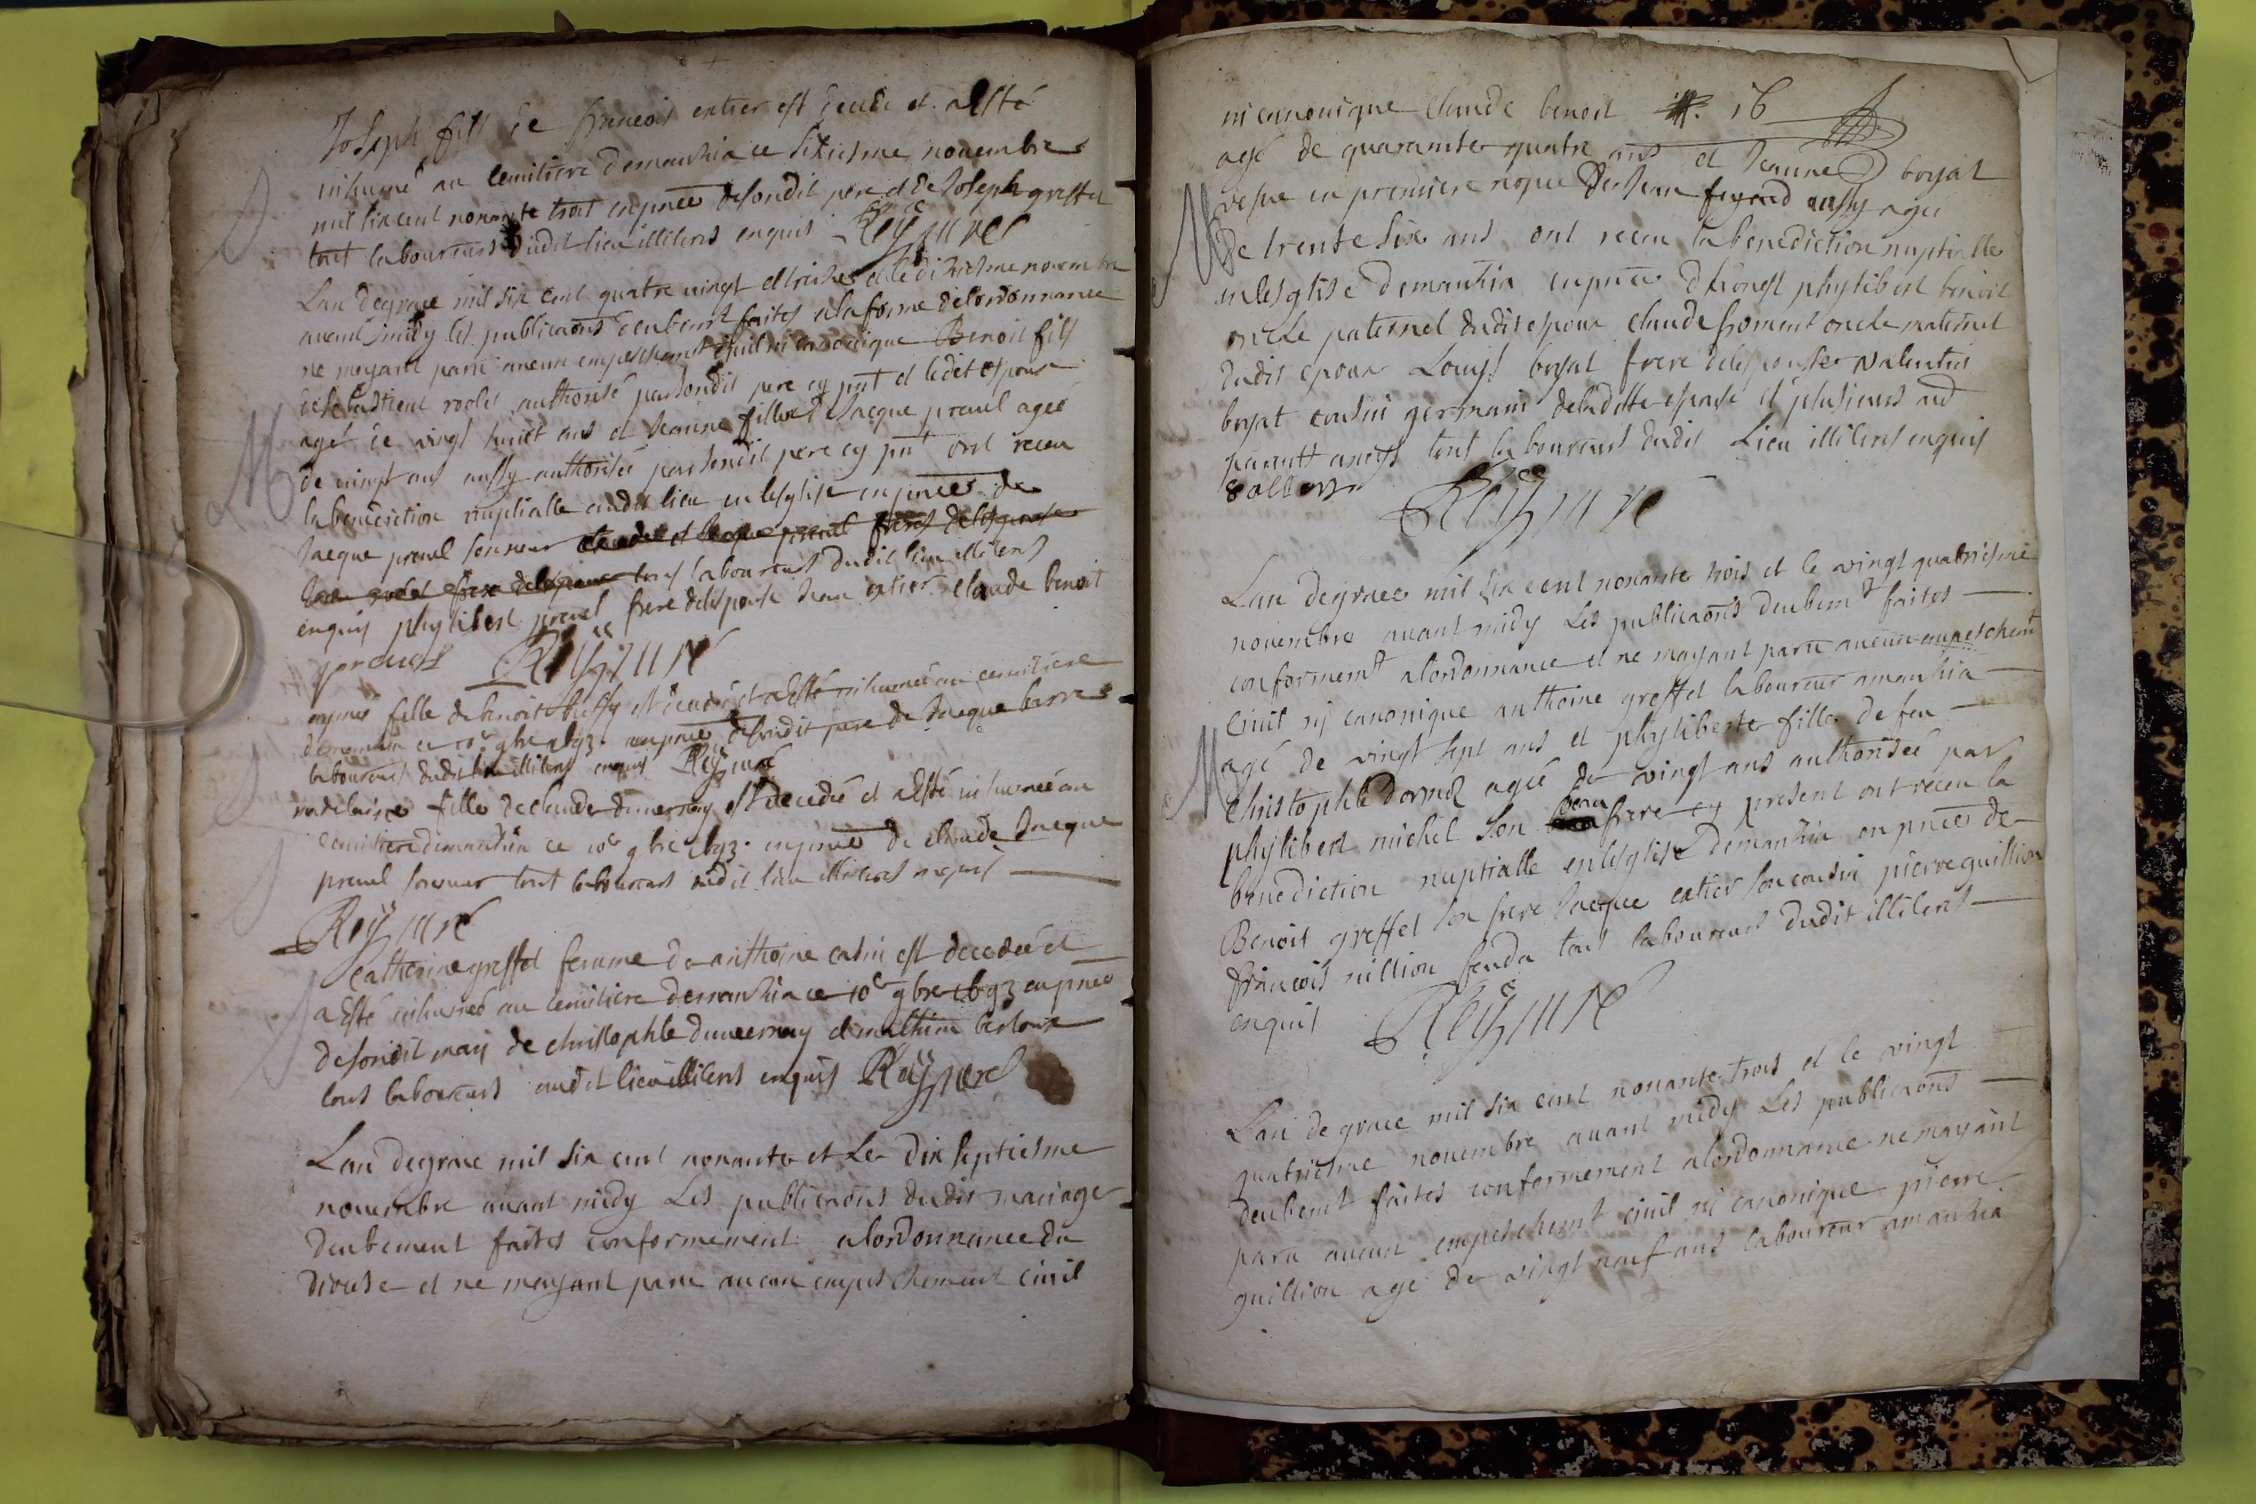 Joseph fils de francois entier est decede et a esté
inhumé au cemitiere demanhia ce sixiesme novembre
mil six cent nonante trois en pnce desondit pere et de Joseph greffet
tout laboureurs dudit lieu illiteres enquis Rey curé
Lan degrace mil six cent quatre vingt et treise et le dixiesme novembre
avent midy les publicaons deubemt faites a la forme de lordonnance
ne mayant paru aucun empeschemt civil ni canonique Benoit fils
de sebastient rodet authorisé par sondit pere cy pnt et ledit espoux
agé de vingt huict ans et Jeanne fille de Jacque preuel ageé
de vingt ans aussy authorisée par sondit pere cy pnt ont receu
la benediction nuptialle audit lieu en lesglise en pnce de
Jacque preuel sonneur claude et Jacque preuel freres de lespouse
Jean rodet frere de lespoux tous laboureurs dudit lieu illiteres
enquis phylibert preuel frere de lespouse Jean entier claude benoit
presents Rey curé
fille de benoit buffy est decedé et a esté inhumée au cemitiere
demanhia ce 10e 9bre 1693 en pnce desondit pere de Jacque
laboureurs dudit lieu illiteres enquis Rey curé
madelaine fille de claude duvernay est decedé et a esté inhumée au
cemitiere demanhia ce 10e 9bre 1693 en pnce de claude Jacque
preuel sonneur tout laboureurs dudit lieu illiteres enquis
Rey curé
Catherine greffet femme de anthoine est decedeé et
a esté inhumeé au cemitiere demanhia ce 10e 9bre 1693 en pnce
desondit mary de christophle duvernay et mathieu
tous laboureurs audit lieu illiteres enquis Rey curé
Lan degrace mil six cent nonante et Le dix septiesme
novembre avant midy Les publicaons dudit mariage
deubement faites conformement a lordonnance du
diocese et ne mayant paru aucun empeschement civil
ni cannonique Claude benoit 16
agé de quarante quatre ans et Jeanne boyat
vefve en premiere nopce de Jean aussy ageé
De trente six ans ont receu la benediction nuptialle
en lesglise demanhia en pnce dhonest phylibert benoit
oncle paternel dudit espoux claude froment oncle maternel
dudit epoux Louys boyat frere de lespouse valentin
boyat cousin germain de laditte espouse et plusieurs aud
parants tout laboureurs dudit Lieu illiteres enquis
Rey curé
Lan degrace mil six cent nonante trois et le vingt quatriesme
novembre avant midy Les publicaons deubemt faites
conformemt a lordonnance et ne mayant paru aucun empeschemt
civil ny canonique anthoine greffet laboureur amanhia
agé de vingt sept ans et phyliberte fille de feu
christophle ageé de vingt ans authoriseé par
phylibert michel son beau frere cy present ont receu la
benediction nuptialle en lesglise demanhia en pnce de
Benoit greffet son frere Jacque entier son cousin pierre guillion
francois million tous laboureurs dudit illiteres
enquis Rey curé
Lan de grace mil six cent nonante trois et le vingt
quatriesme novembre avant midy Les publicaons
deubemt faites conformement a lordonnance ne mayant
paru aucun empeschemt civil ni canonique pierre
guillion agé de vingt neuf ans laboureur amanhia